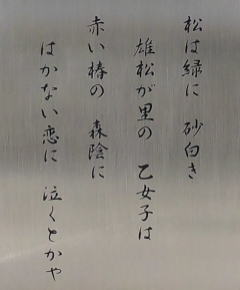 松は緑に 砂白き
雄松が里の 乙女子は
赤い椿の 森陰に
はかない恋に 泣くとかや